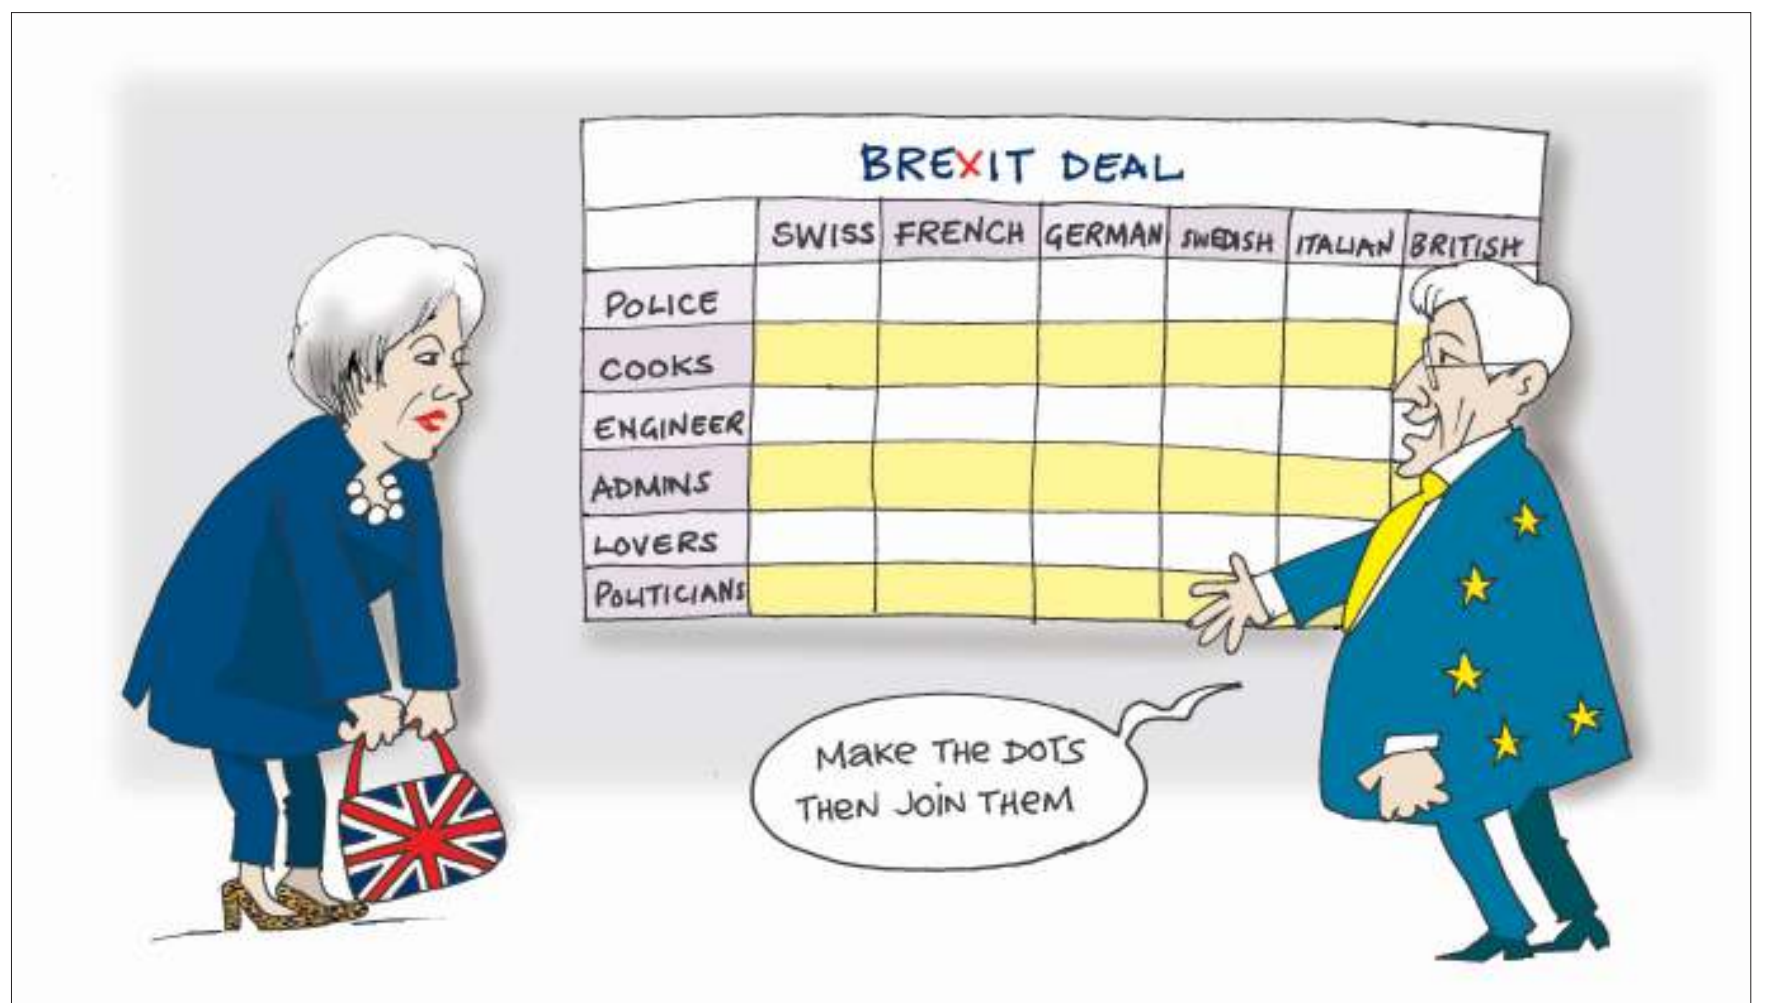 BREXIT DEAL
SWISS FRENCH GERMAN SWEDISH ITALIAN BRITISH
POLICE
COOKS
ENGINEER
ADMINS
LOVERS
POLITICIANS
Make THe DOTS
THeN JOiN THeM